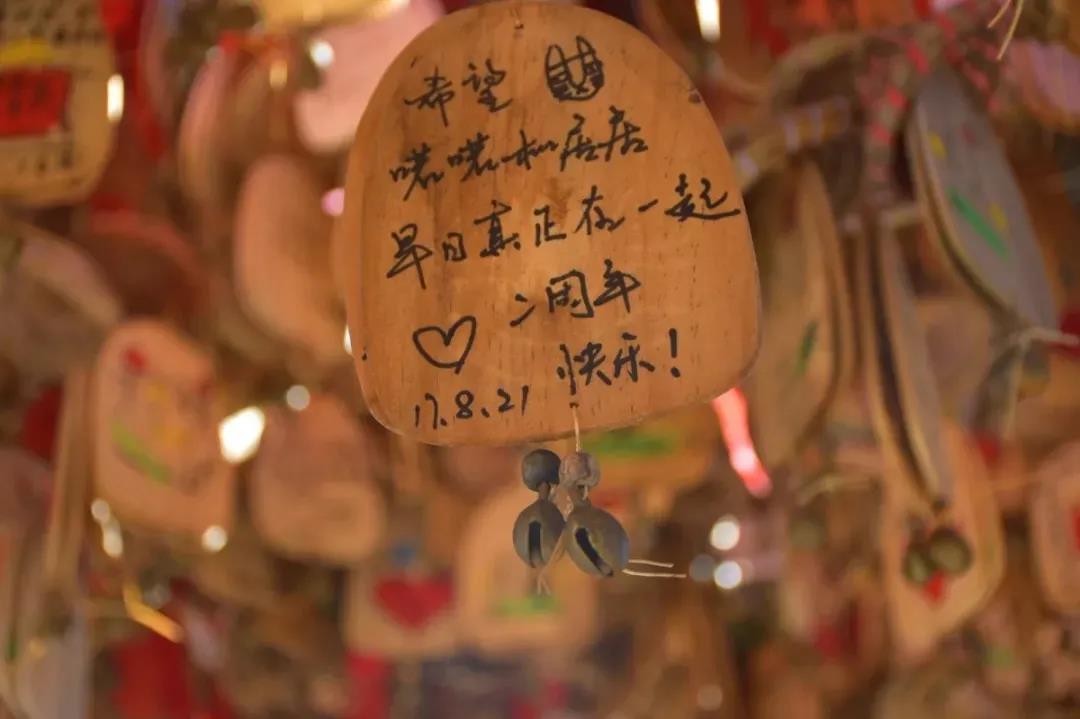 希望
喏喏和居居
早日真正在一起
二周年
♡ 快乐！
17.8.21